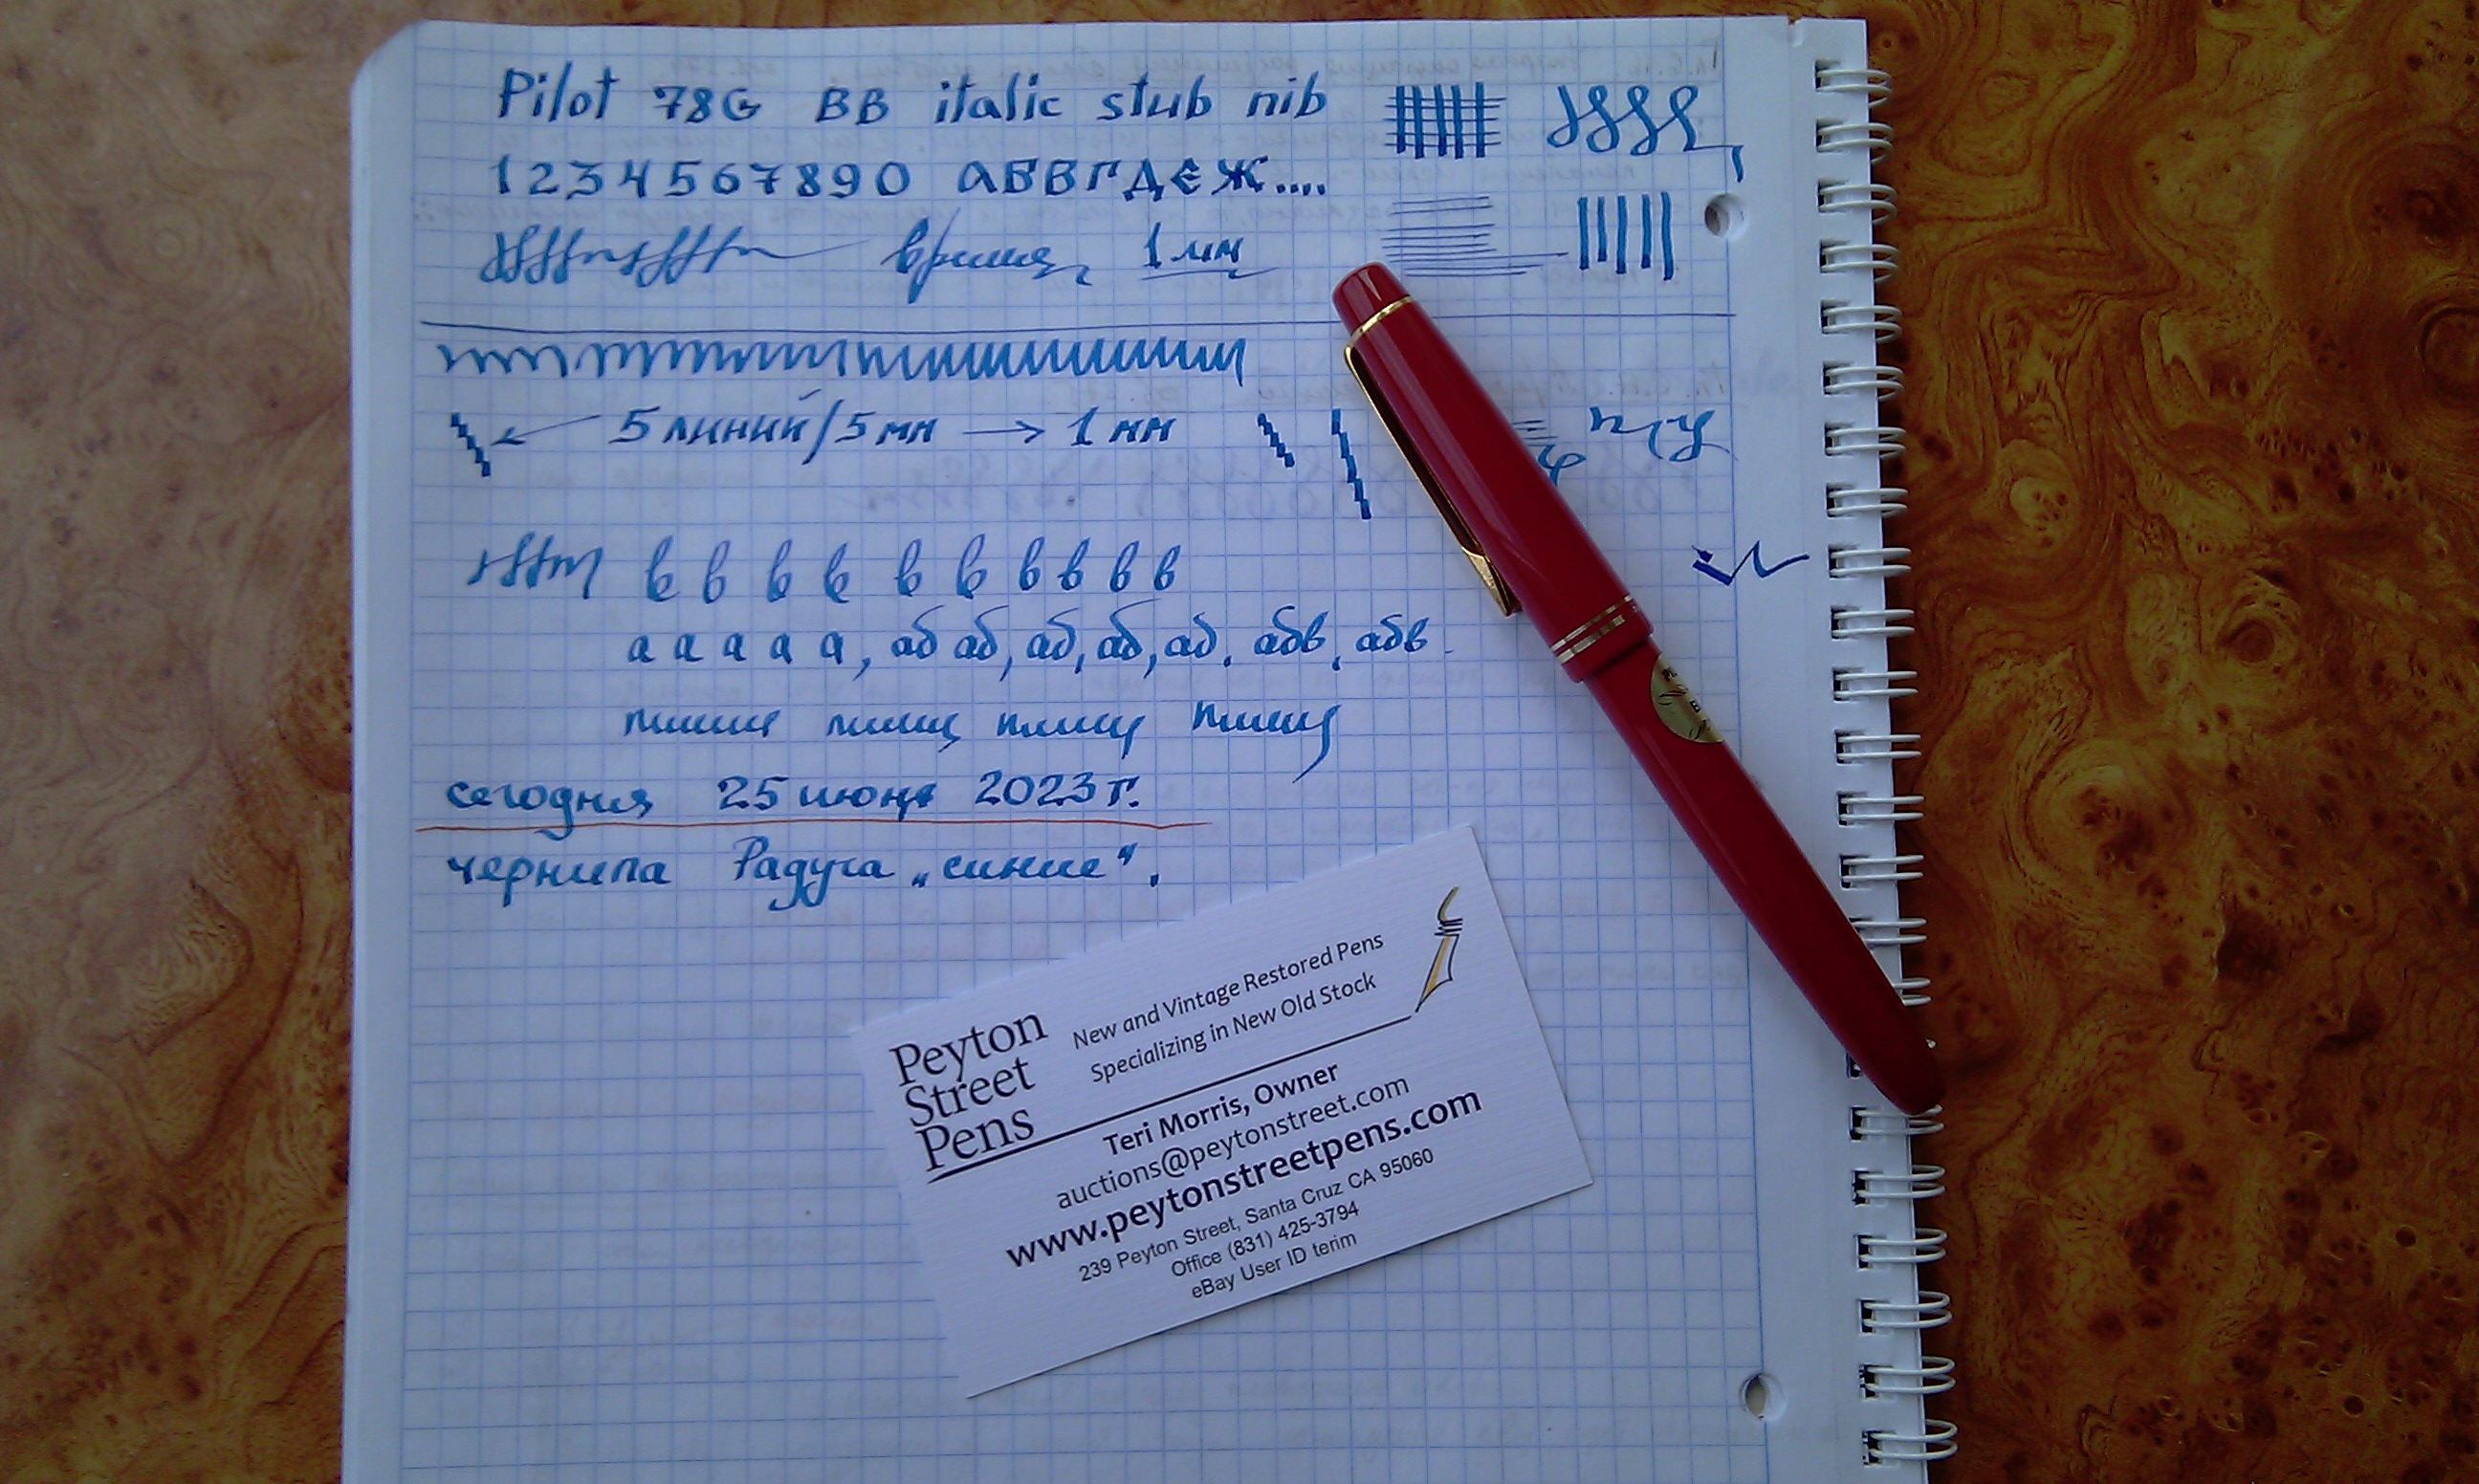 Pilot 78G BB italic stub nib
1234567890 АБВГДЕЖ....
время, 1 мм
5 линий/5 мм → 1 мм
в в в в в в в в в в
а а а а а, аб аб, аб, аб, аб, абв, абв.
пишу пишу пишу пишу
сегодня 25 июня 2023 г.
чернила Радуга „синие".
Peyton
Street
Pens
New and Vintage Restored Pens
Specializing in New Old Stock
Teri Morris, Owner
auctions@peytonstreet.com
www.peytonstreetpens.com
239 Peyton Street, Santa Cruz CA 95060
Office (831) 425-3794
eBay User ID terim